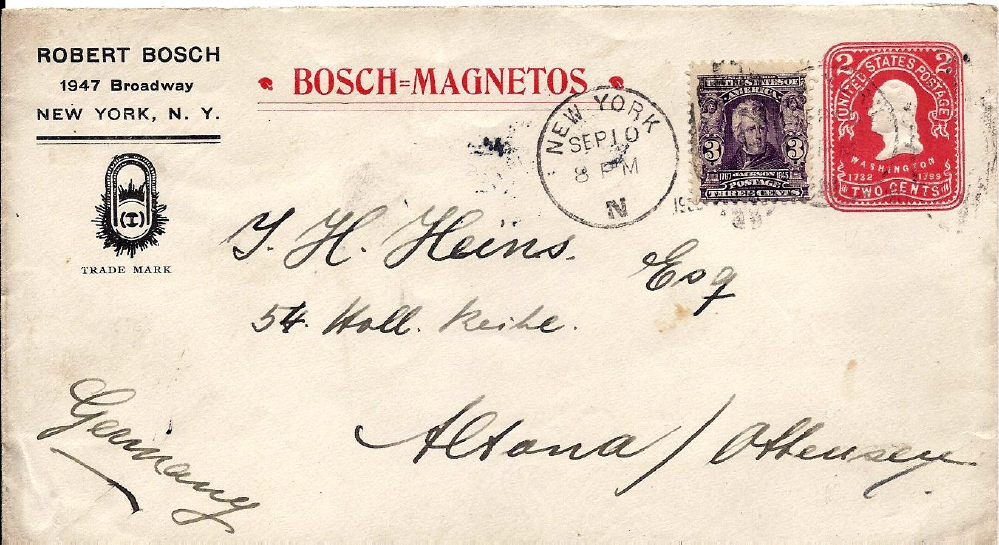 ROBERT BOSCH
1947 Broadway
NEW YORK, N. Y.
TRADE MARK
BOSCH=MAGNETOS
NEW YORK
SEP 10
8 PM
N
UNITED STATES OF
AMERICA
3 3
1767 JACKSON 1845
POSTAGE
THREE CENTS
2 2
UNITED STATES POSTAGE
WASHINGTON
1732 1799
TWO CENTS
J. H. Heins. Esq
54. Holl. Reihe.
Altona / Ottensen
Germany